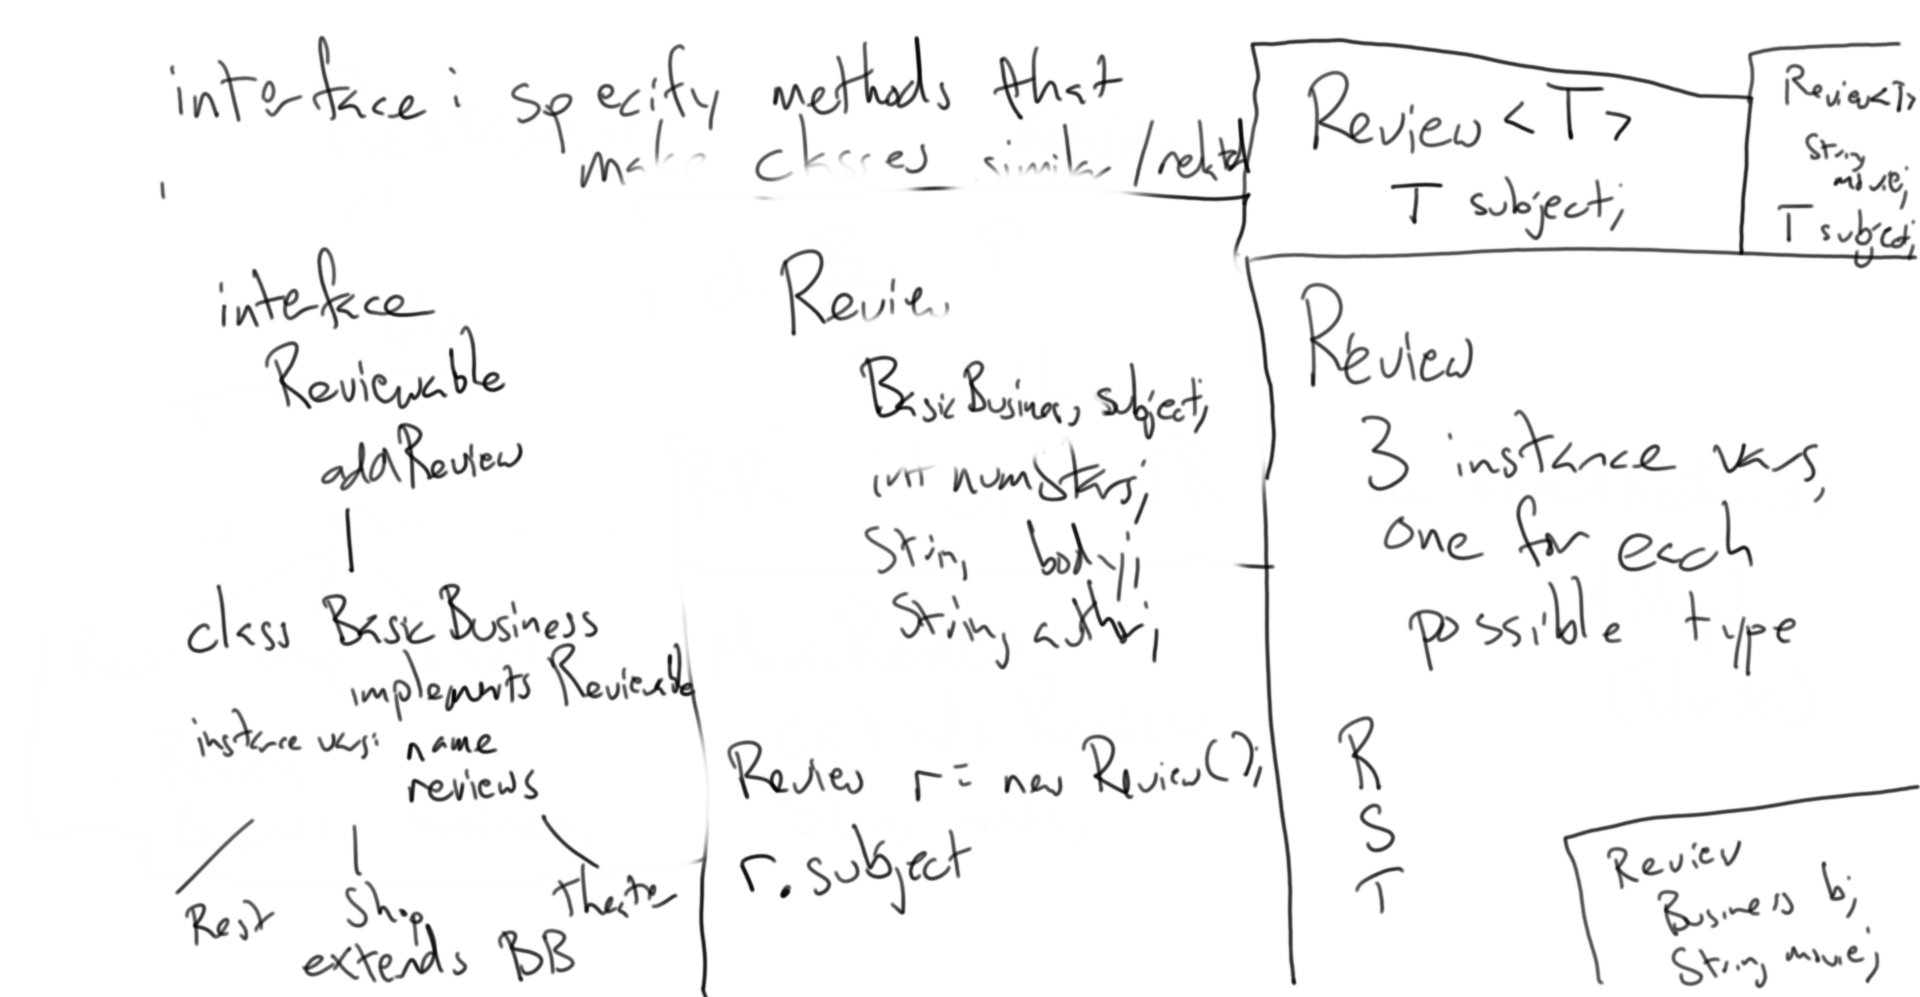 interface: specify methods that
make classes similar/related
interface
Reviewable
addReview
class BasicBusiness
implements Reviewable
instance vars: name
reviews
Rest
Shop
Theater
extends BB
Review
BasicBusiness subject;
int numStars;
String body;
String author;
Review r = new Review();
r.subject
Review<T>
T subject;
Review<T>
String
movie;
T subject;
Review
3 instance vars,
one for each
possible type
R
S
T
Review
Business b;
String movie;